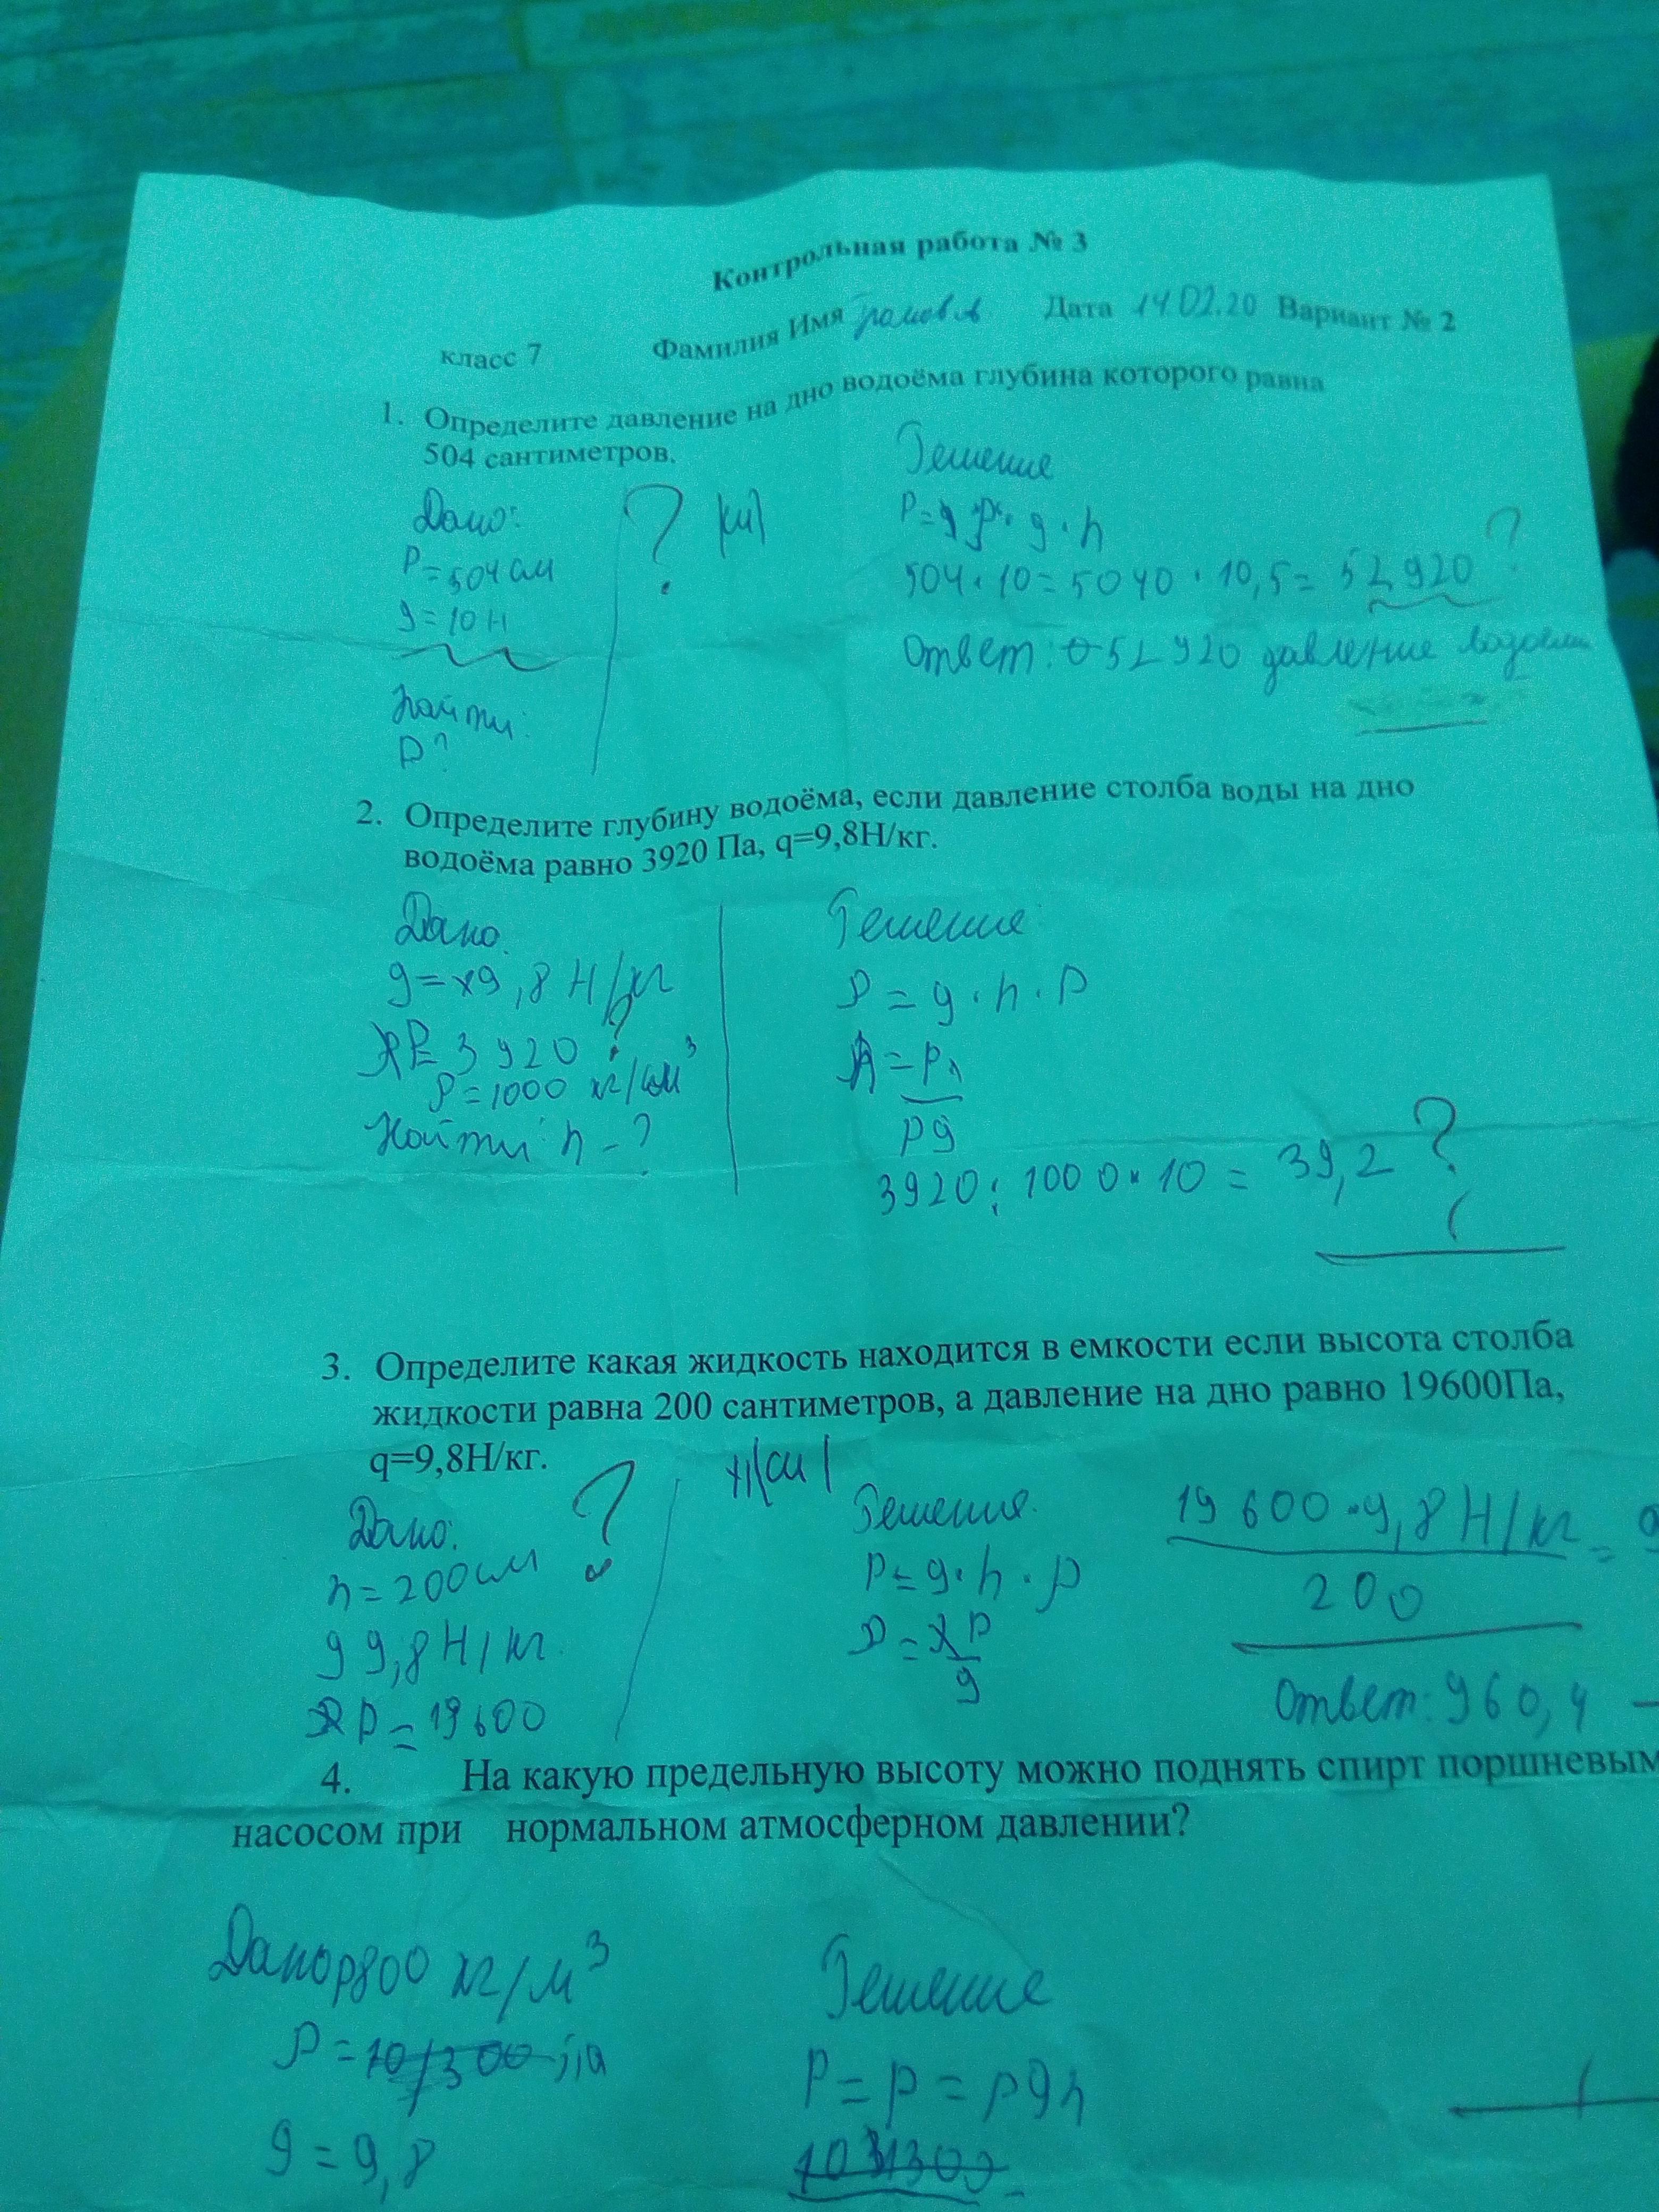 Контрольная работа № 3
класс 7 Фамилия Имя Дата 14.02.20 Вариант № 2
1. Определите давление на дно водоёма глубина которого равна
504 сантиметров.
Дано: ? |си| Решение
P=504 см
g=10 Н
g · h
504 · 10 = 5040 · 10,5 = 52920 ?
Ответ: 52920 давление
Найти:
P?
2. Определите глубину водоёма, если давление столба воды на дно
водоёма равно 3920 Па, q=9,8Н/кг.
Дано. Решение:
g= 9,8 Н/кг
P = g · h · P
P= 3920 ?
ρ=1000 кг/см³
h = P
ρg
Найти: h - ?
3920 : 1000 · 10 = 39,2 ?
3. Определите какая жидкость находится в емкости если высота столба
жидкости равна 200 сантиметров, а давление на дно равно 19600Па,
q=9,8Н/кг.
Дано: ? |си| Решение.
h = 200 см
g 9,8 Н/кг
P = 19600
P = g · h · ρ
P = P
g
19600 · 9,8 Н/кг =
200
Ответ: 960,4 –
4. На какую предельную высоту можно поднять спирт поршневым
насосом при нормальном атмосферном давлении?
Дано ρ800 кг/м³ Решение
P =
g = 9,8
P = p = ρgh